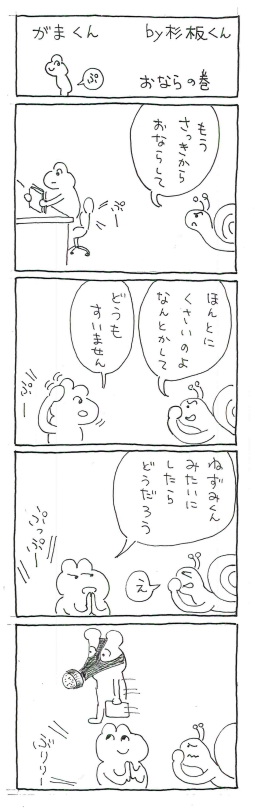 がまくん
by杉板くん
ぷ
おならの巻
もう
さっきから
おならして
ぷ〜
ほんとに
くさいのよ
なんとかして
どうも
すいません
ぷ〜
ねずみくん
みたいに
したら
どうだろう
え
ぷっぷー
ぷっつー